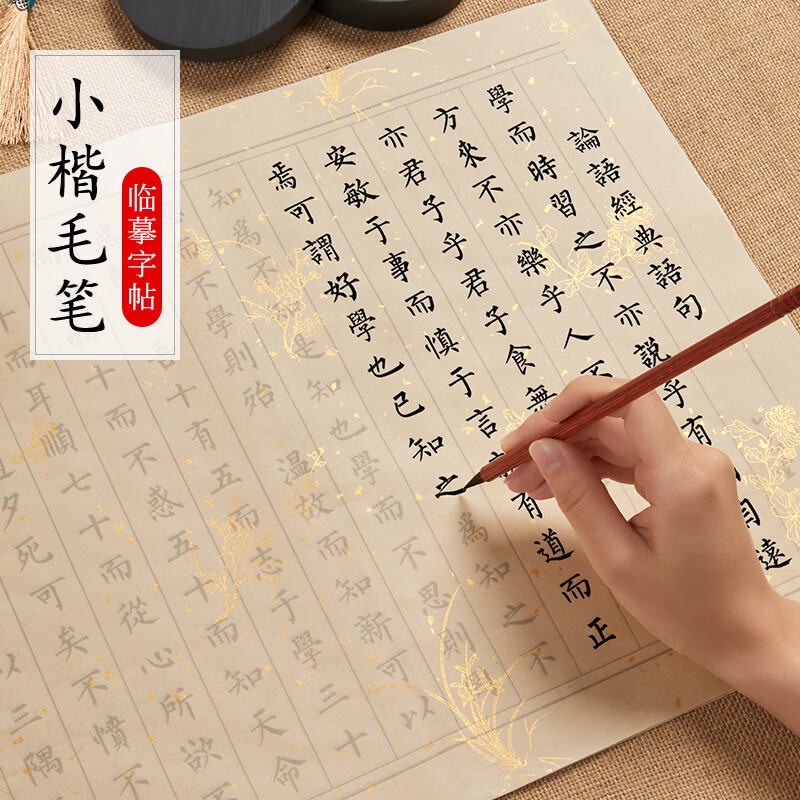 小楷毛笔
临摹字帖
論語經典語句
學而時習之不亦説乎有遠
方來不亦樂乎人不
亦君子乎君子食無
安敏于事而慎于言有道而正
焉可謂好學也已知之爲知之不
知爲不知是知也學而不思則
不學則殆溫故而知新可以
十有五而志于學三十
十而不惑五十而知天命
十而耳順七十而從心所欲
夕死可矣不憤不
以三隅